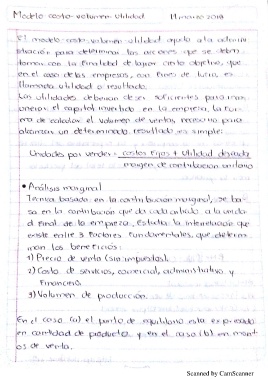 Modelo costo-volumen-utilidad 11 marzo 2019
El modelo costo-volumen-utilidad ayuda a la admini
stración para determinar las acciones que se deben
tomar con la finalidad de lograr cierto objetivo, que
en el caso de las empresas, con fines de lucro, es
llamada utilidad o resultado.
Las utilidades deberían de ser suficientes para
el capital invertido en la empresa, la
de calcular el volumen de ventas necesario para
alcanzar un determinado resultado es simple:
Unidades por vender = costos fijos + utilidad deseada
margen de contribución unitario
• Análisis marginal
Técnica basada en la contribución marginal, se ba-
sa en la contribución que da cada artículo a la utilida
d final de la empresa, estudia la interrelación que
existe entre 3 factores fundamentales, que determi
nan los beneficios:
1) Precio de venta (sin impuestos).
2) Costo de servicios, comercial, administrativo y
financiero
3) Volumen de producción.
En el caso (a) el punto de equilibrio esta expresado
en cantidad de producto y en el caso (b) en mont
os de venta.
Scanned by CamScanner